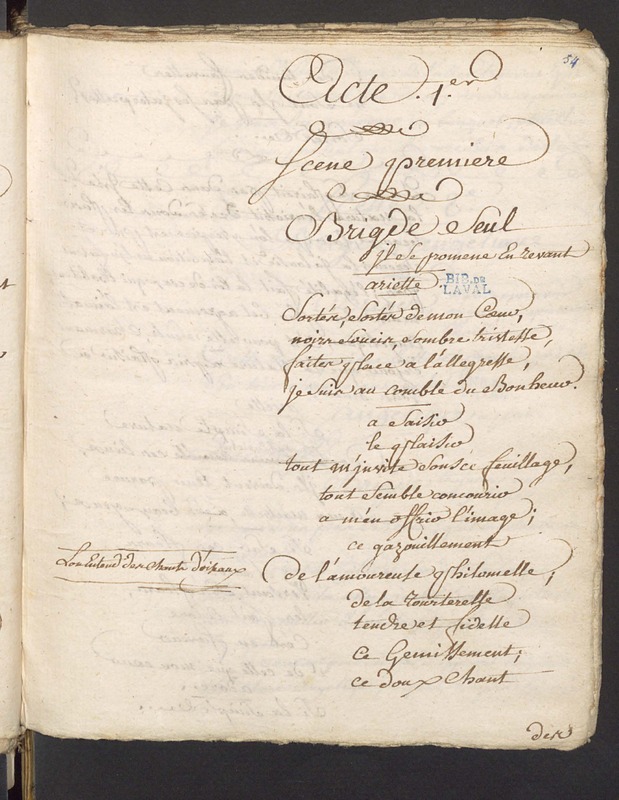 54
Acte. 1.er
Scene premiere
Brigde Seul
jl se pomene En revant
ariette
BIB. DE
LAVAL
Sortés, Sortés de mon Cœur,
noirs Soucis, Sombre tristesse,
faites place a l'allegresse,
je suis au comble du Bonheur.
a Saisir
le plaisir
tout m'jnvite Sous ce feuillage,
tout Semble concourir
a m'en offrir l'image;
ce gazouillement
Lon Entend des chants d'oiseaux
de l'amoureuse philomelle,
de la Tourterelle
tendre et fidelle
Ce Gemissement;
ce doux Chant
des